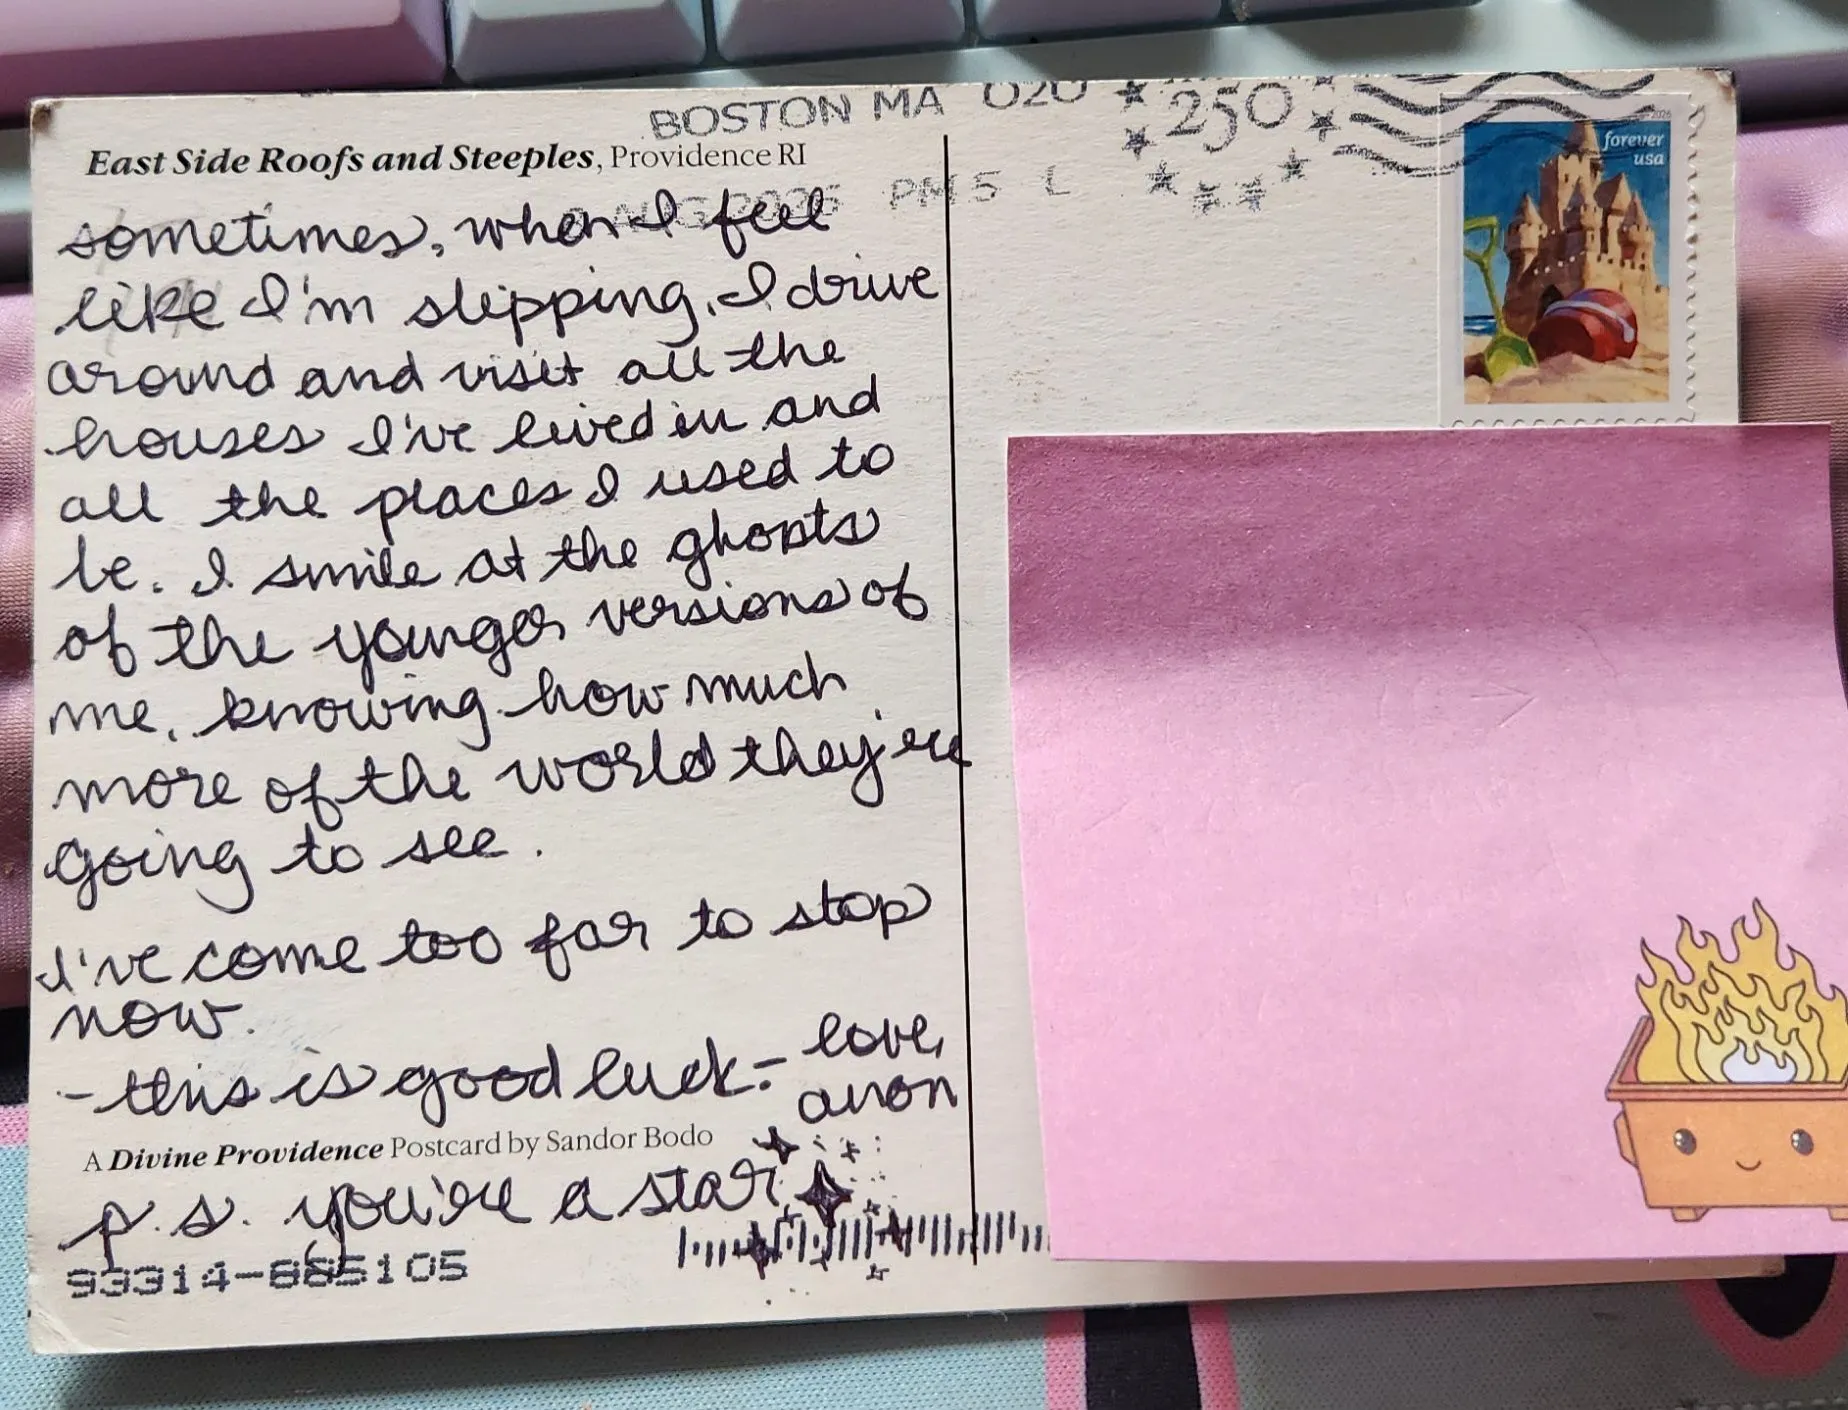 BOSTON MA 020
250
PM 5 L
forever
usa
East Side Roofs and Steeples, Providence RI
sometimes, when I feel
like I'm slipping, I drive
around and visit all the
houses I've lived in and
all the places I used to
be. I smile at the ghosts
of the younger versions of
me, knowing how much
more of the world they're
going to see.
I've come too far to stop
now.
- this is good luck. - love,
anon
A Divine Providence Postcard by Sandor Bodo
p.s. you're a star
93314-885105